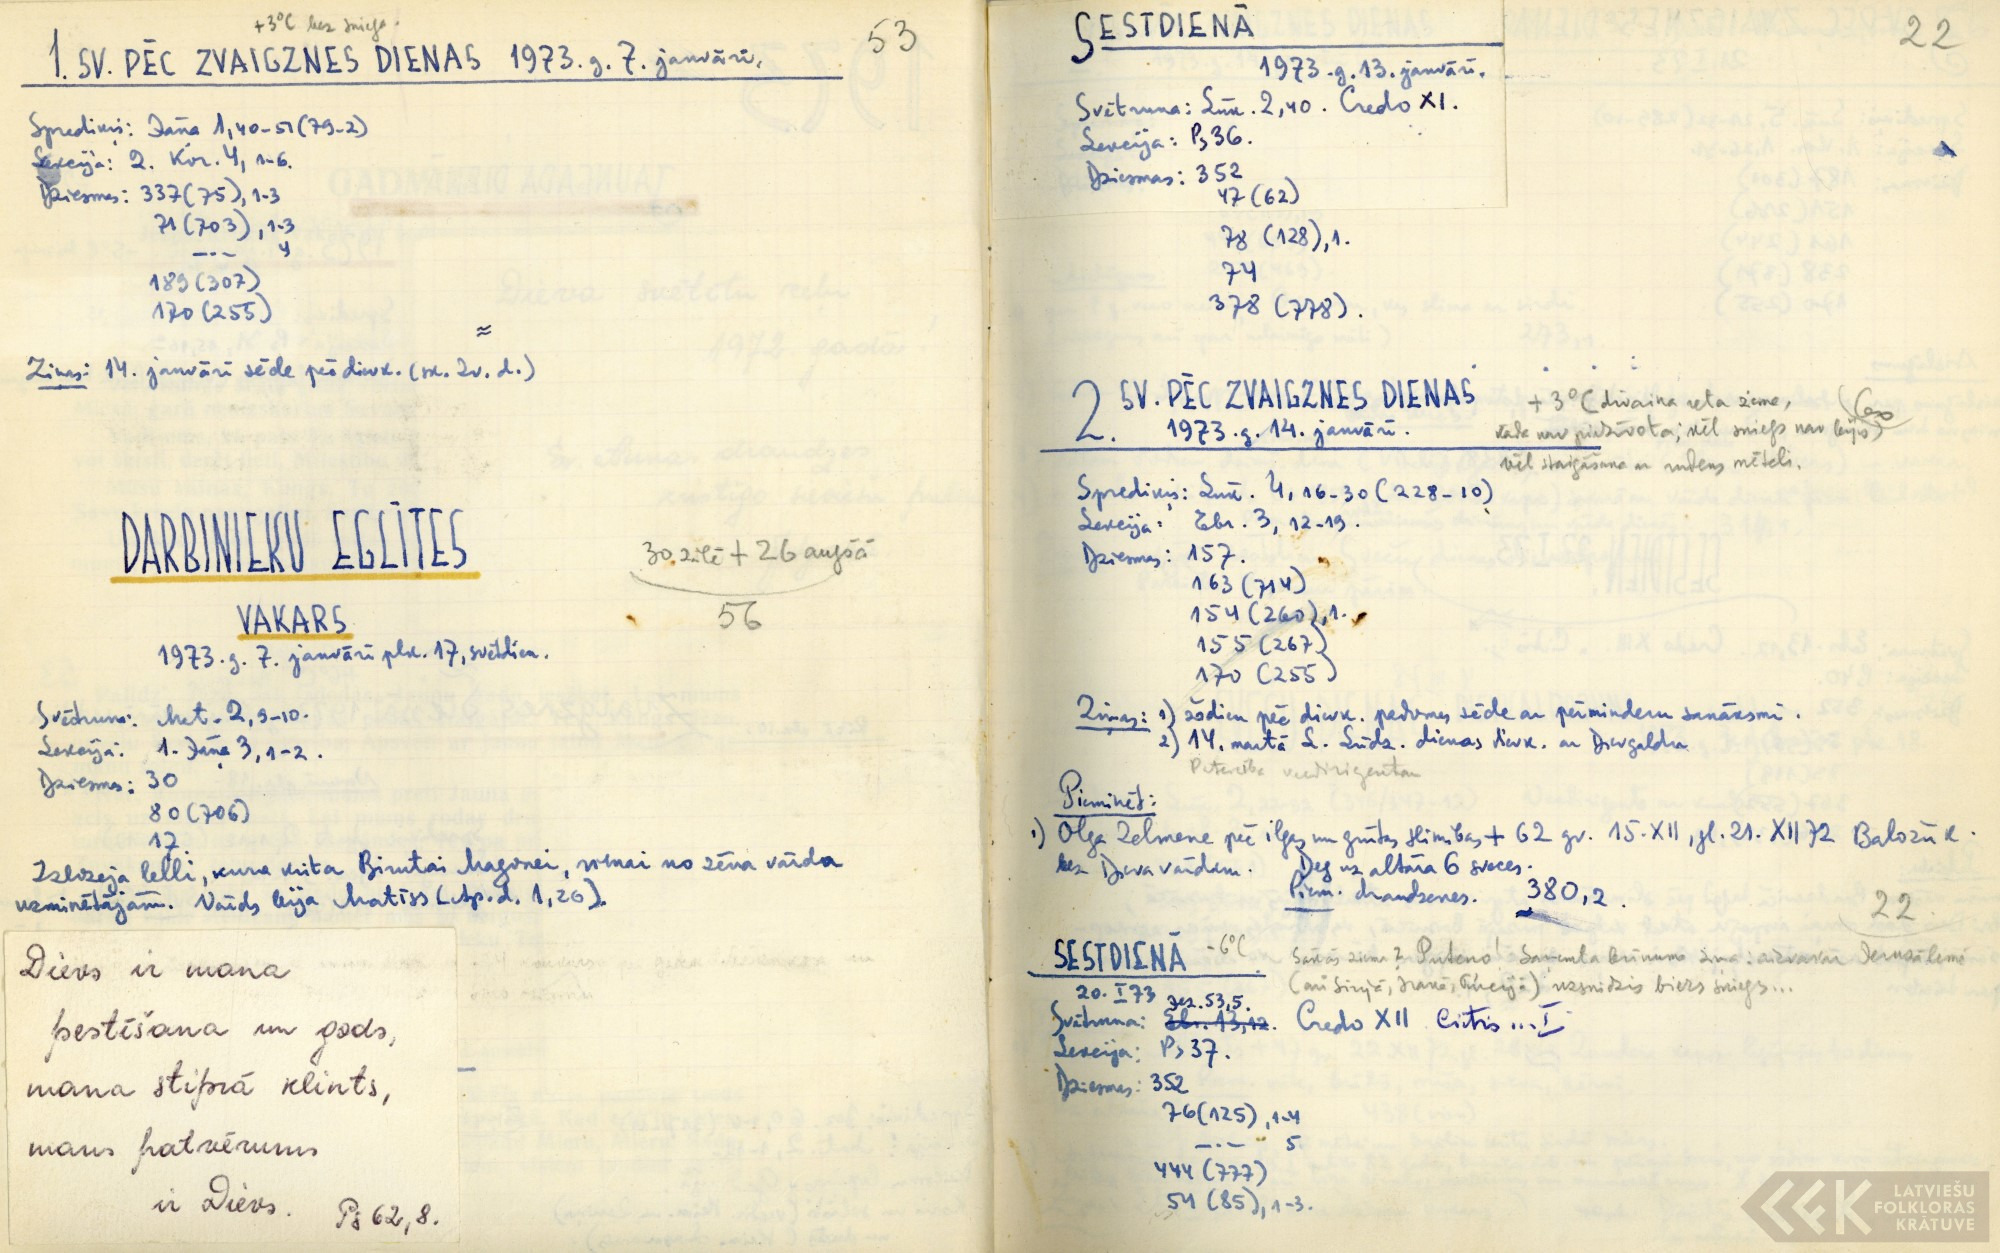 +3°C bez sniega.
53
1. SV. PĒC ZVAIGZNES DIENAS 1973.g. 7. janvārī.
Sprediķis: Jāņa 1,40-51 (79-2)
Lekcija: 2. Kor. 4, 1-6.
Dziesmas: 337(75), 1-3
71(703), 1-3
—·— 4
189(307)
170(255)
≈
Ziņas: 14. janvārī sēde pēc dievk. (sk. Zv. d.)
DARBINIEKU EGLĪTES
VAKARS
1973.g. 7. janvārī plk. 17, svētdien.
30 zālē + 26 augšā
56
Svētruna: Mat. 2, 9-10.
Lekcija: 1. Jāņa 3, 1-2.
Dziesmas: 30
80(706)
17.
Izlozēja lelli, kura krita Birutai Magonei, vienai no zēna vārda
uzminētājām. Vārds bija Matīss (Ap.d. 1,26).
Dievs ir mana
pestīšana un gods,
mana stiprā klints,
mans patvērums
ir Dievs. Ps 62, 8.
SESTDIENĀ
22
1973.g. 13. janvārī.
Svētruna: Lūk. 2,40. Credo XI.
Lekcija: Ps 36.
Dziesmas: 352
47(62)
78 (128), 1.
74
378 (778).
2. SV. PĒC ZVAIGZNES DIENAS
1973.g. 14. janvārī.
+3°C dīvaina reta ziema,
kāda nav piedzīvota; vēl sniegs nav bijis
vēl staigāšana ar rudens mēteli.
Sprediķis: Lūk. 4, 16-30 (228-10)
Lekcija: Ebr. 3, 12-19.
Dziesmas: 157.
163(714)
154(260), 1.
155(267)
170(255)
Ziņas: 1) šodien pēc dievk. padomes sēde ar pērminderu sanāksmi.
2) 14. martā L. Lūdz. dienas dievk. ar Dievgaldu
Pieminēt:
1) Olga Zelmene pēc ilgas un grūtas slimības + 62 gv. 15.XII, gl. 21.XII 72 Baložu k.
bez Dieva vārdiem. Deg uz altāra 6 sveces.
Piem. draudzenes. 380,2.
22
SESTDIENĀ -6°C
Sākās ziema? Putenis! Saņemta brīnuma ziņa: aizvakar Jeruzālemē
(arī Sīrijā, Irakā, Turcijā) uzsnidzis biezs sniegs...
20. I 73 Jez. 53,5.
Svētruna: Ebr. 13,12. Credo XII Cietis... I
Lekcija: Ps 37.
Dziesmas: 352
76(125), 1-4
—·— 5
444(777)
54(85), 1-3.
LATVIEŠU
FOLKLORAS
KRĀTUVE